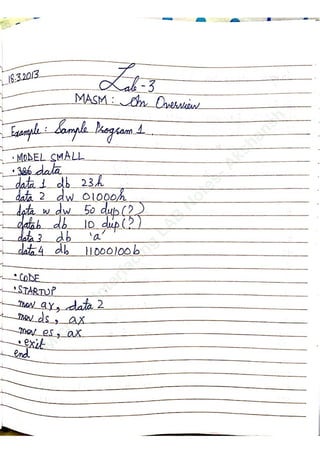 18.3.2013
Lab-3
MASM: An Overview
Example: Sample Program 1
.MODEL SMALL
.386 data
data 1 db 23h
data 2 dw 01000h
data w dw 50 dup(?)
datab db 10 dup(?)
data 3 db 'a'
data 4 db 11000100b
.CODE
.STARTUP
mov ax, data 2
mov ds, ax
mov es, ax
.exit
end